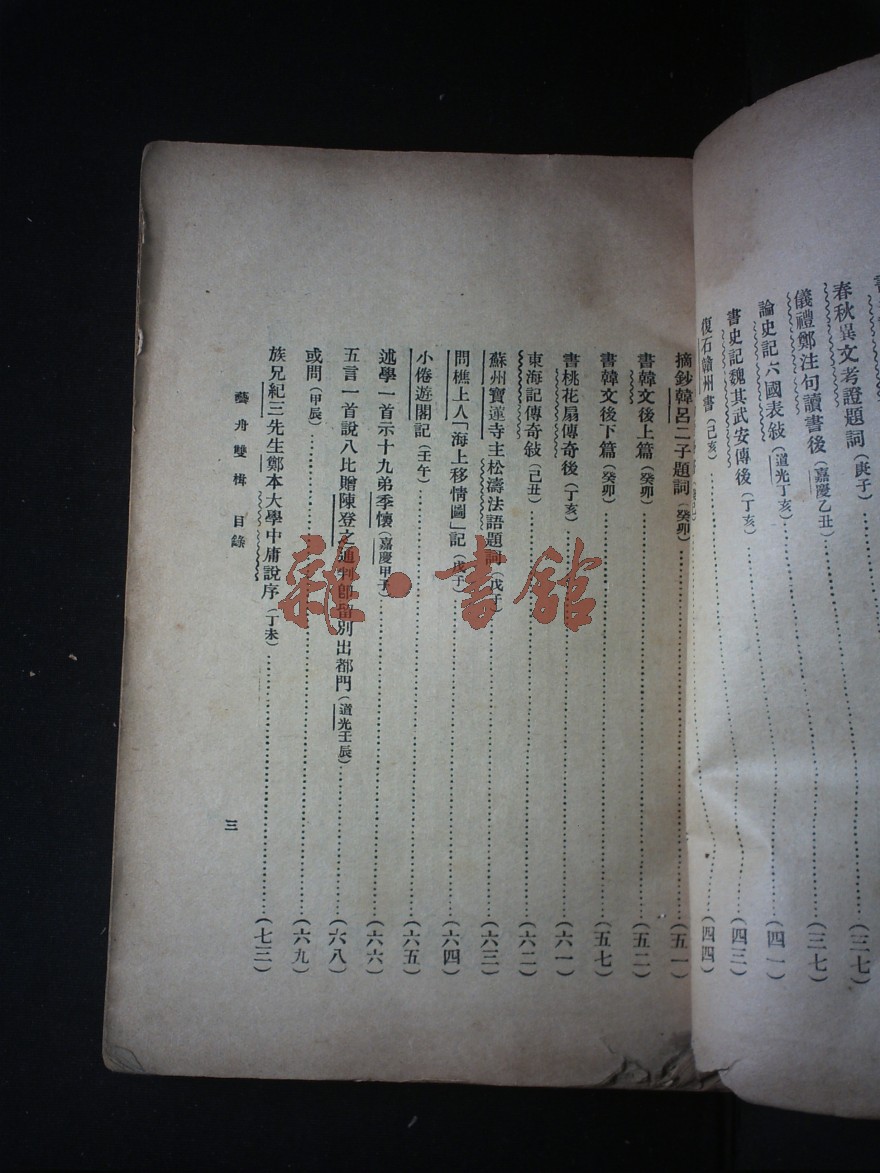 春秋異文考證題詞(庚子)……(三七)
儀禮鄭注句讀書後(嘉慶乙丑)……(三七)
論史記六國表敍(道光丁亥)……(四一)
書史記魏其武安傳後(丁亥)……(四三)
復石贛州書(己亥)……(四四)
摘鈔韓呂二子題詞(癸卯)……(五一)
書韓文後上篇(癸卯)……(五二)
書韓文後下篇(癸卯)……(五七)
書桃花扇傳奇後(丁亥)……(六一)
東海記傳奇敍(己丑)……(六二)
蘇州寶蓮寺主松濤法語題詞(戊子)……(六三)
問樵上人「海上移情圖」記(戊子)……(六四)
小倦遊閣記(壬午)……(六五)
述學一首示十九弟季懷(嘉慶甲子)……(六六)
五言一首說八比贈陳登之通判卽留別出都門(道光壬辰)……(六八)
或問(甲辰)……(六九)
族兄紀三先生鄭本大學中庸說序(丁未)……(七三)
藝舟雙楫 目錄
三
雜·書館